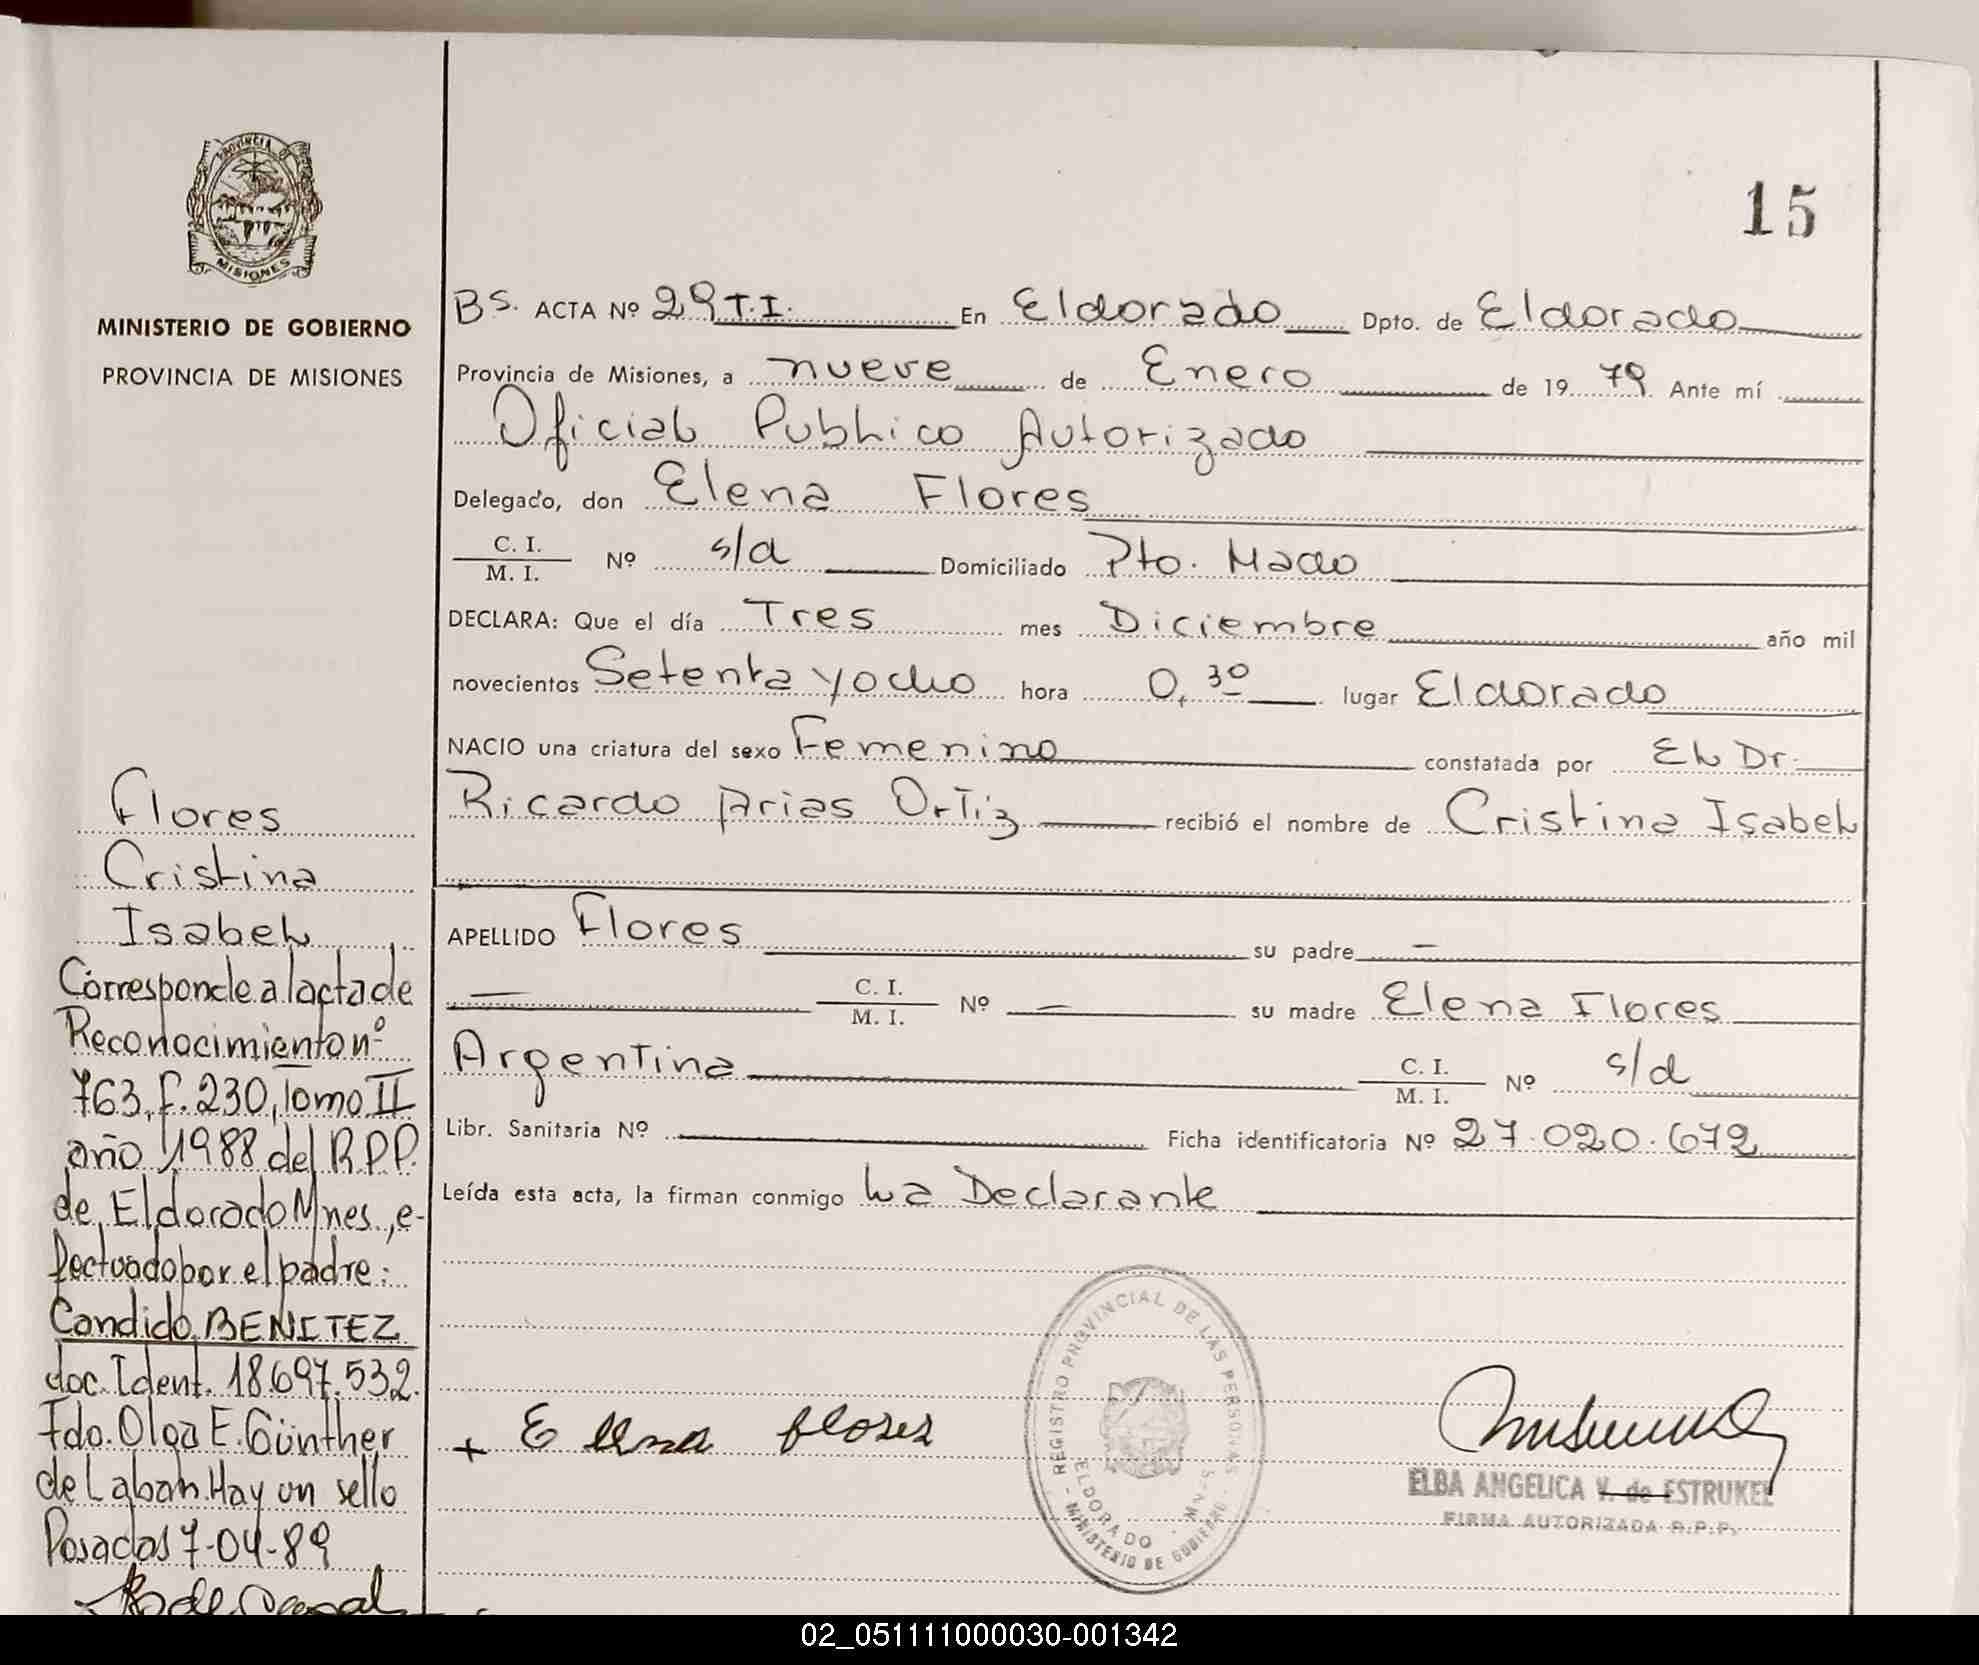 PROVINCIA DE
MISIONES
MINISTERIO DE GOBIERNO
PROVINCIA DE MISIONES
15
Bs. ACTA Nº 29 T.I. En Eldorado Dpto. de Eldorado
Provincia de Misiones, a nueve de Enero de 19 79 Ante mí
Oficial Publico Autorizado
Delegado, don Elena Flores
C. I.
M. I. Nº s/d Domiciliado Pto. Mado
DECLARA: Que el día Tres mes Diciembre año mil
novecientos Setenta y ocho hora 0,30 lugar Eldorado
NACIO una criatura del sexo Femenino constatada por El Dr.
Ricardo Arias Ortiz recibió el nombre de Cristina Isabel
APELLIDO Flores su padre —
— C. I.
M. I. Nº — su madre Elena Flores
Argentina C. I.
M. I. Nº s/d
Libr. Sanitaria Nº Ficha identificatoria Nº 27.020.672
Leída esta acta, la firman conmigo La Declarante
+ Elena flores
REGISTRO PROVINCIAL DE LAS PERSONAS
ELDORADO - MNES-
- MINISTERIO DE GOBIERNO -
ELBA ANGELICA V. de ESTRUKEL
FIRMA AUTORIZADA R.P.P.
Flores
Cristina
Isabel
Corresponde al acta de
Reconocimiento nº
763, f. 230, Tomo II
año 1988 del R.P.P.
de Eldorado Mnes., e-
fectuado por el padre:
Candido BENITEZ
doc. Ident. 18.697.532.
Fdo. Olga E. Günther
de Laban. Hay un sello
Posadas 7-04-89
02_051111000030-001342